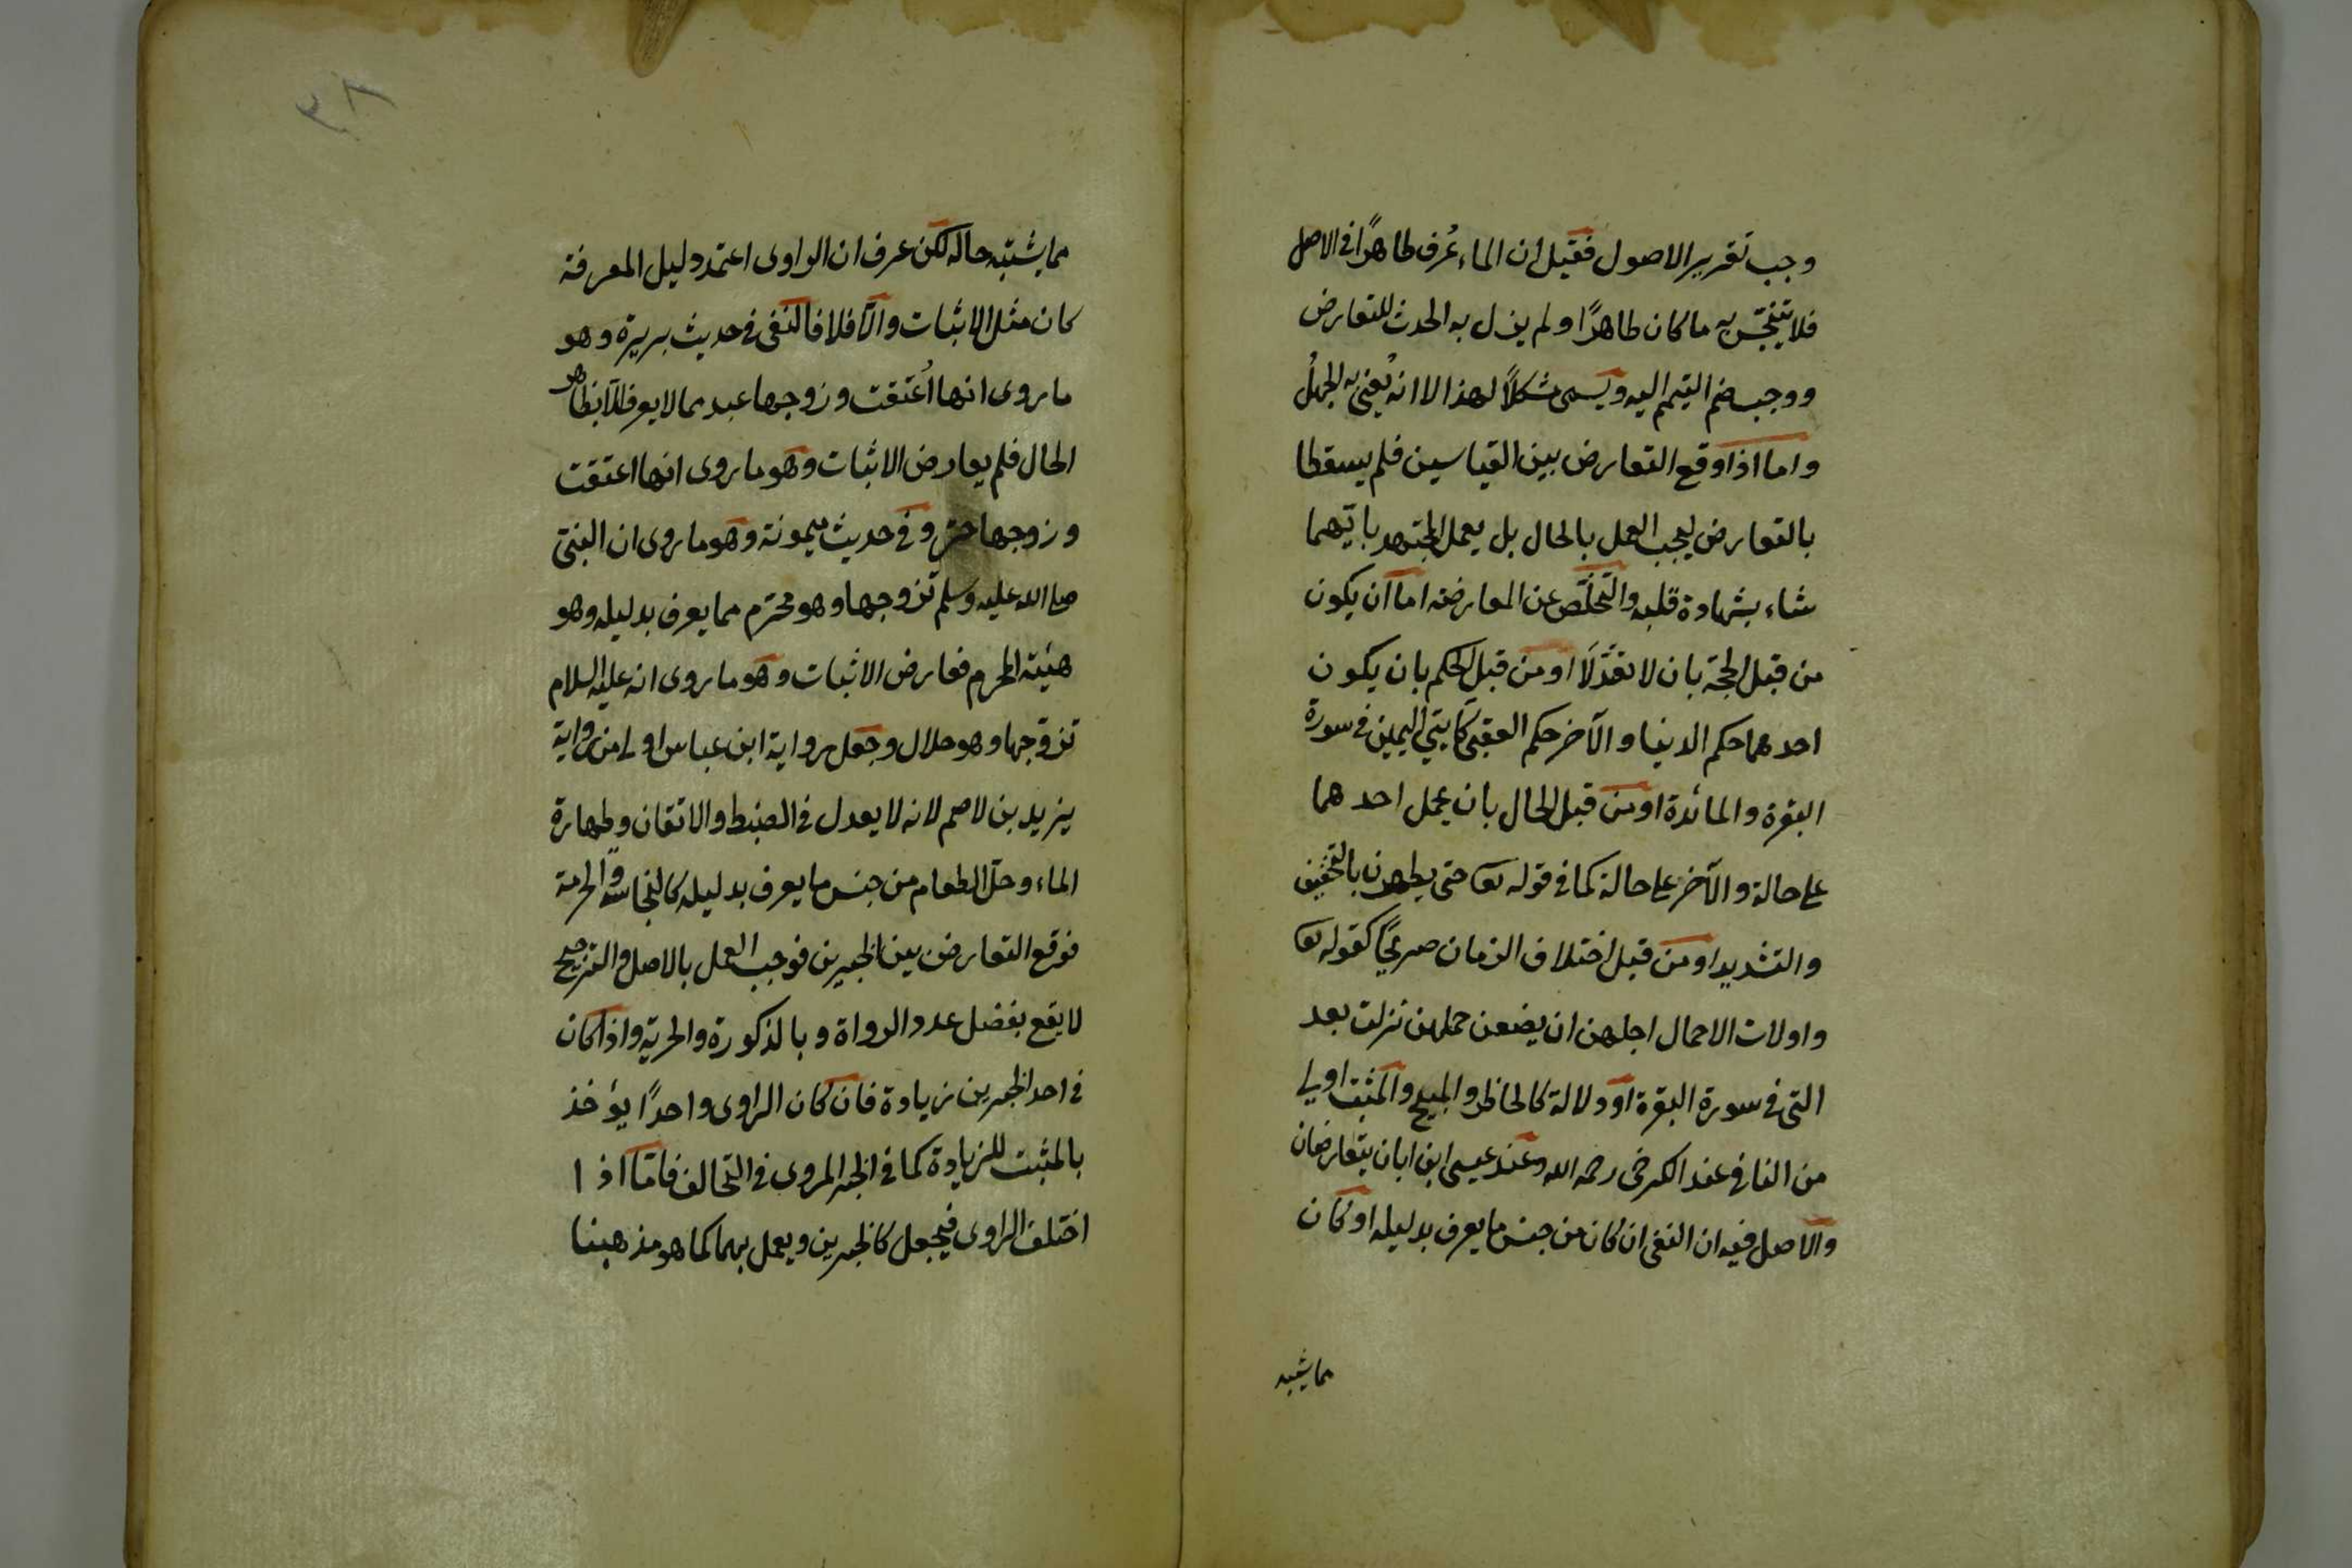 وجب تقرير الاصول فقيل ان الماء عُرف طاهرًا فى الاصل
فلا يتنجّس به ما كان طاهرًا ولم يزل به الحدث للتعارض
ووجب ضم التيمم اليه ويسمى مشكلًا لهذا لا انه يُعنى به الجهلُ
واما اذا وقع التعارض بين القياسين فلم يسقطا
بالتعارض ليجب العمل بالحال بل يعمل المجتهد بايّهما
شاء بشهادة قلبه والتخلّص عن المعارضة اما ان يكون
من قبل الحجة بان لا تعدّلَا او من قبل الحكم بان يكون
احدهما حكم الدنيا والآخر حكم العقبى كآيتي اليمين فى سورة
البقرة والمائدة او من قبل الحال بان يحمل احدهما
على حالة والآخر على حالة كما فى قوله تعا حتى يطهرن بالتخفيف
والتشديد او من قبل اختلاف الزمان صريحًا كقوله تعا
واولات الاحمال اجلهن ان يضعن حملهن نزلت بعد
التى فى سورة البقرة او دلالة كالحاظر والمبيح والمثبت اولى
من النافى عند الكرخى رحمه الله وعند عيسى ابن ابان يتعارضان
والاصل فيه ان النفى ان كان من جنس ما يعرف بدليله او كان
مما يشتبه
٣٨
مما يشتبه حاله لكن عرف ان الراوى اعتمد دليل المعرفة
كان مثل الاثبات والّا فلا فالنفى فى حديث بريرة وهو
ما روى انها اُعتقت وزوجها عبد مما لا يعرف الّا بظاهر
الحال فلم يعارض الاثبات وهو ما روى انها اعتقت
وزوجها حرّ وفى حديث ميمونة وهو ما روى ان النبىّ
صلى الله عليه وسلم تزوجها وهو محرم مما يعرف بدليله وهو
هيئة المحرم فعارض الاثبات وهو ما روى انه عليه السلام
تزوّجها وهو حلال وجعل رواية ابن عباس اولى من رواية
يزيد بن لاصم لانه لا يعدل فى الضبط والاتقان وطهارة
الماء وحلّ الطعام من جنس ما يعرف بدليله كالنجاسة والحرمة
فوقع التعارض بين الخبرين فوجب العمل بالاصل والترجيح
لا يقع بفضل عدد الرواة وبالذكورة والحرية واذا كان
فى احد الخبرين زيادة فان كان الراوى واحدًا يؤخذ
بالمثبت للزيادة كما فى الخبر المروى فى التحالف فامّا اذا
اختلف الراوى فيجعل كالخبرين ويعمل بهما كما هو مذهبنا